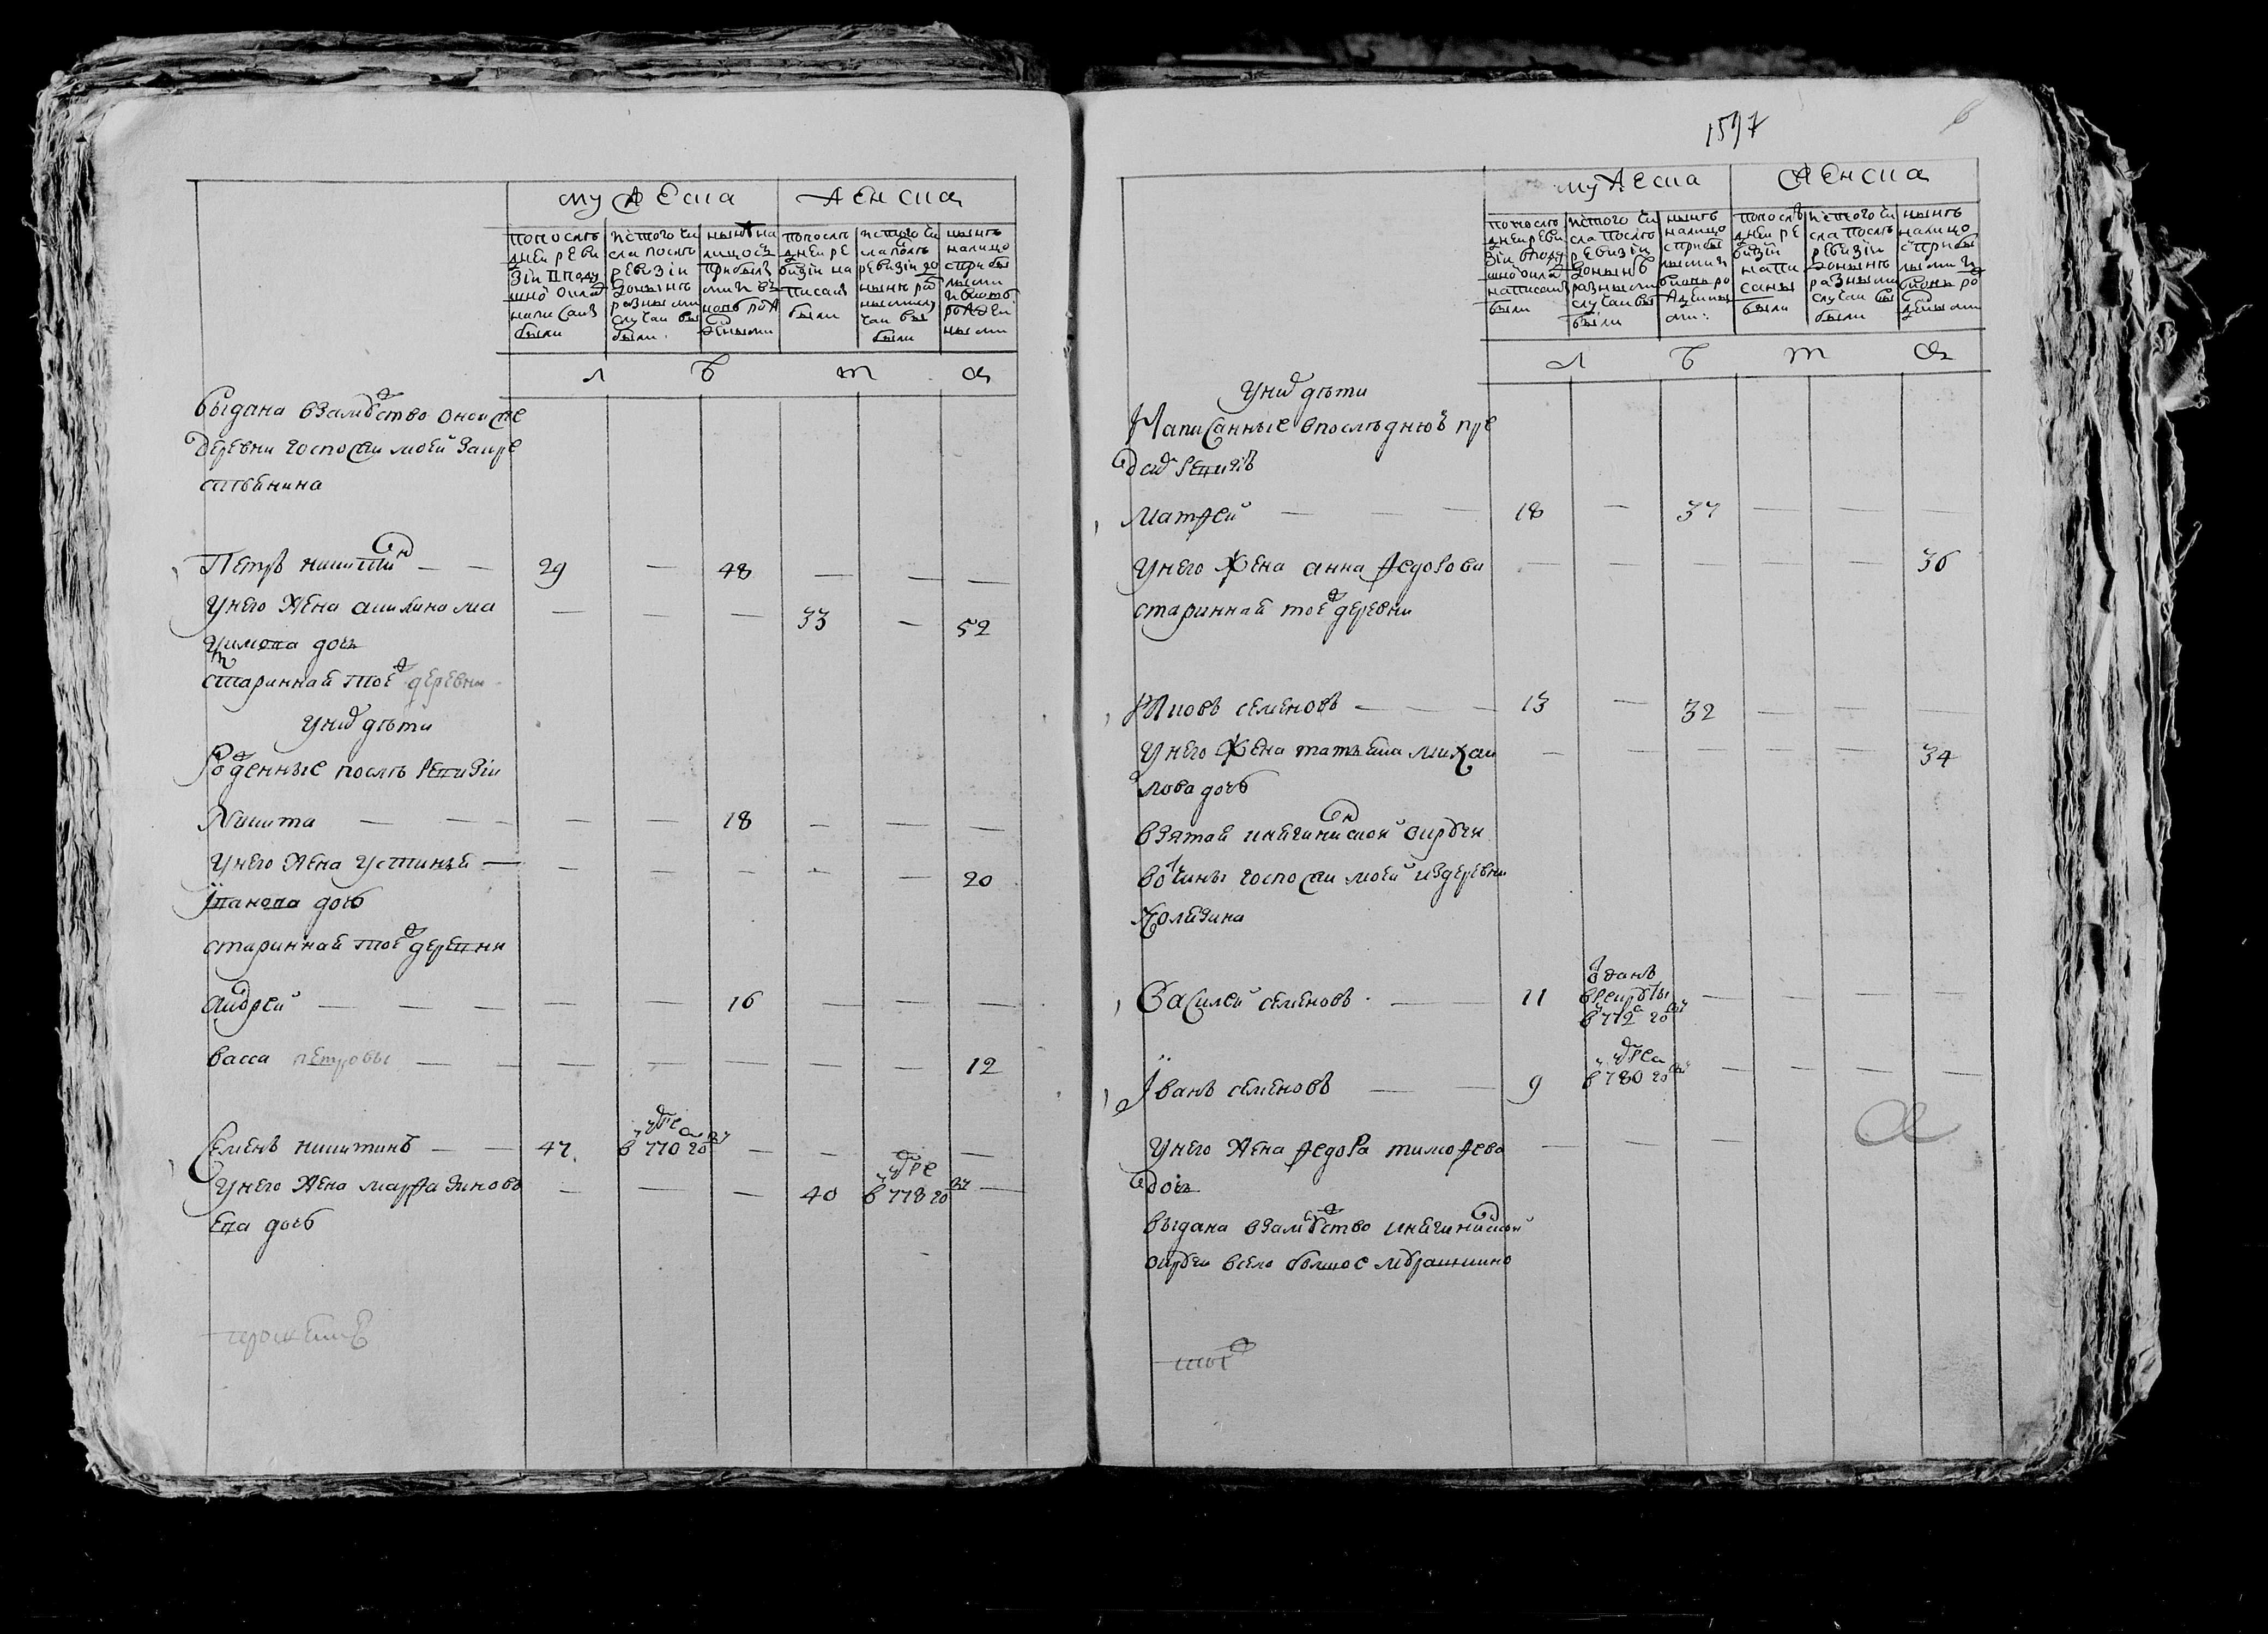 мужеска женска
попослѣ
дней реви
зіи вподу
шной окладъ
написаны
были
истого чи
сла послѣ
ревизіи
донынѣ
разными
случаи вы
были
нынѣ на
лицо съ
прибылы
ми и вновь рож
денными
попослѣ
дней ре
визіи на
писаны
были
истого чи
сла послѣ
ревизіи до
нынѣ раз
ными слу
чаи вы
были
нынѣ
налицо
сприбы
лыми
и вновь
рожден
ными
л ѣ т а
выдана взамужство оной же
деревни господи моей закре
стьянина
Петръ никитинъ — — 29 — 48 — — —
Унего жена акилина ма — — — 33 — 52
дочь
старинная тоежъ деревни
Унихъ дѣти
Рожденные послѣ ревизіи
Никита — — — — — 18 — — —
Унего жена устинья — — — — — — 20
Іванова дочь
старинная тоежъ деревни
андрей — — — — — 16 — — —
васса петровы — — — — — — — 12
Семенъ никитинъ — — 47 умре в 770 году — — — —
Унего жена марфа зиновь — — — 40 умре в 778 году —
ева дочь
1597
мужеска женска
попослѣ
дней реви
зіи вподу
шной окладъ
написаны
были
истого чи
сла послѣ
ревизіи
донынѣ
разными
случаи вы
были
нынѣ
налицо
сприбы
лыми и
вновь ро
жденны
ми
попослѣ
дней ре
визіи
напи
саны
были
истого чи
сла послѣ
ревизіи
донынѣ
разными
случаи вы
были
нынѣ
налицо
сприбы
лыми и
вновь ро
жденными
л ѣ т а
Унихъ дѣти
Написанные впослѣднюю пре
дъ сихъ ревизію
Матфей — — — 18 — 37 — — —
Унего жена анна федорова — — — — — 36
старинная тоежъ деревни
Яковъ семеновъ — — — 13 — 32 — — —
Унего жена татьяна михаи — — — — — 34
лова дочь
взятая княгининской округи
вотчины господи моей издеревни
Василей семеновъ — 11 отданъ врекруты в 772 году — — — —
Іванъ семеновъ — — 9 умре в 780 году — — — —
Унего жена федора тимофева — — —
дочь
выдана взамужство княгининской
округи всело болшое мурашкино
тоежъ